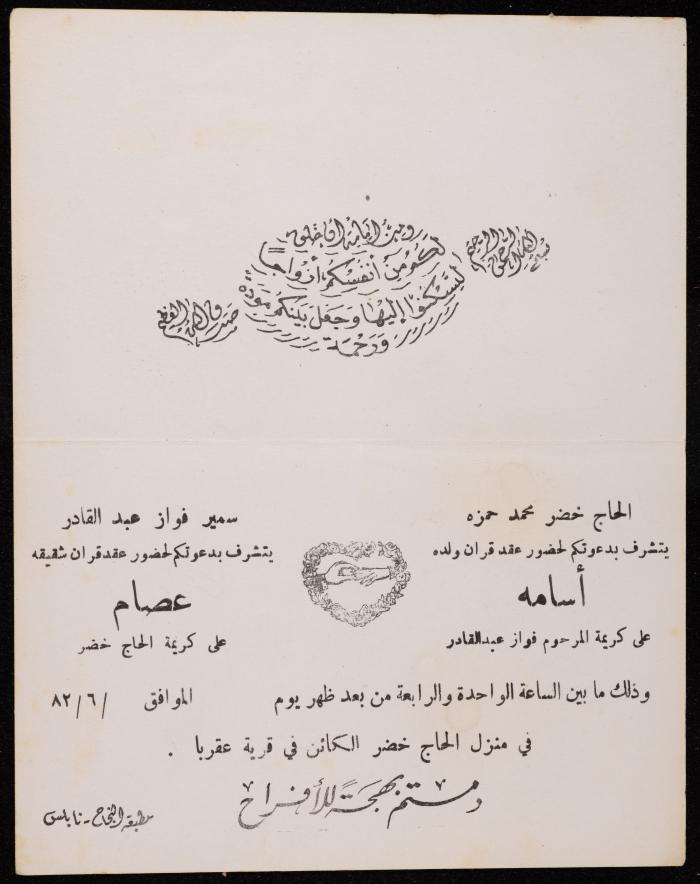 بسم الله الرحمن الرحيم
ومن آياته أن خلق
لكم من أنفسكم أزواجاً
لتسكنوا إليها وجعل بينكم مودة
ورحمة
صدق الله العظيم
الحاج خضر محمد حمزه
يتشرف بدعوتكم لحضور عقد قران ولده
أسامه
على كريمة المرحوم فواز عبدالقادر
سمير فواز عبد القادر
يتشرف بدعوتكم لحضور عقد قران شقيقه
عصام
على كريمة الحاج خضر
وذلك ما بين الساعة الواحدة والرابعة من بعد ظهر يوم الموافق / ٦ / ٨٢
في منزل الحاج خضر الكائن في قرية عقربا .
ودمتم بهجة للأفراح
مطبعة النجاح - نابلس